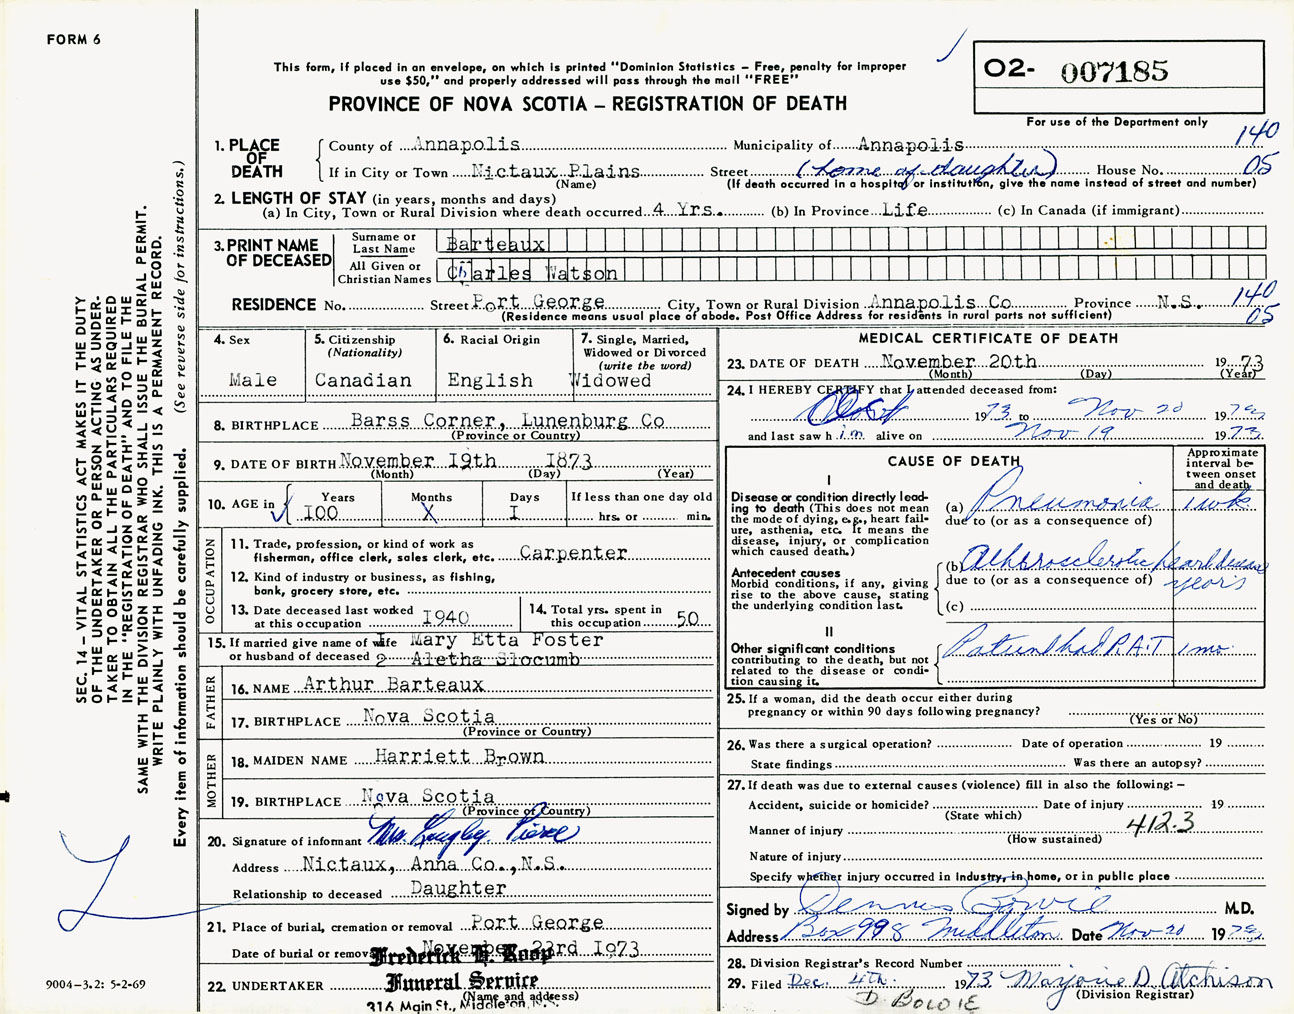 FORM 6
This form, if placed in an envelope, on which is printed "Dominion Statistics – Free, penalty for improper
use $50," and properly addressed will pass through the mail "FREE"
PROVINCE OF NOVA SCOTIA – REGISTRATION OF DEATH
O2- 007185
For use of the Department only
SEC. 14 – VITAL STATISTICS ACT MAKES IT THE DUTY
OF THE UNDERTAKER OR PERSON ACTING AS UNDER-
TAKER TO OBTAIN ALL THE PARTICULARS REQUIRED
IN THE "REGISTRATION OF DEATH" AND TO FILE THE
SAME WITH THE DIVISION REGISTRAR WHO SHALL ISSUE THE BURIAL PERMIT.
WRITE PLAINLY WITH UNFADING INK. THIS IS A PERMANENT RECORD.
Every item of information should be carefully supplied. (See reverse side for instructions.)
1. PLACE OF DEATH
County of Annapolis Municipality of Annapolis 140
If in City or Town Nictaux Plains Street (home of daughter) House No. 05
(Name) (If death occurred in a hospital or institution, give the name instead of street and number)
2. LENGTH OF STAY (in years, months and days)
(a) In City, Town or Rural Division where death occurred 4 Yrs. (b) In Province Life (c) In Canada (if immigrant)
3. PRINT NAME OF DECEASED
Surname or Last Name Barteaux
All Given or Christian Names Charles Watson
RESIDENCE No. Street Port George City, Town or Rural Division Annapolis Co Province N.S. 140
(Residence means usual place of abode. Post Office Address for residents in rural parts not sufficient) 05
4. Sex
Male
5. Citizenship
(Nationality)
Canadian
6. Racial Origin
English
7. Single, Married,
Widowed or Divorced
(write the word)
Widowed
8. BIRTHPLACE Barss Corner, Lunenburg Co
(Province or Country)
9. DATE OF BIRTH November I9th I873
(Month) (Day) (Year)
10. AGE in Years Months Days If less than one day old
I00 X I hrs. or min.
OCCUPATION
11. Trade, profession, or kind of work as
fisherman, office clerk, sales clerk, etc. Carpenter
12. Kind of industry or business, as fishing,
bank, grocery store, etc.
13. Date deceased last worked
at this occupation I940
14. Total yrs. spent in
this occupation 50
15. If married give name of wife I Mary Etta Foster
or husband of deceased 2 Aletha Slocumb
FATHER
16. NAME Arthur Barteaux
17. BIRTHPLACE Nova Scotia
(Province or Country)
MOTHER
18. MAIDEN NAME Harriett Brown
19. BIRTHPLACE Nova Scotia
(Province or Country)
20. Signature of informant Mrs. Langley Pierce
Address Nictaux, Anna Co., N.S.
Relationship to deceased Daughter
21. Place of burial, cremation or removal Port George
Date of burial or removal November 23rd I973
22. UNDERTAKER
Frederick H. Roop
Funeral Service
(Name and address)
316 Main St., Middleton, N.S.
9004-3.2: 5-2-69
MEDICAL CERTIFICATE OF DEATH
23. DATE OF DEATH November 20th 1973
(Month) (Day) (Year)
24. I HEREBY CERTIFY that I attended deceased from:
Oct 1973 to Nov 20 1973
and last saw him alive on Nov 19 1973
CAUSE OF DEATH
Approximate
interval be-
tween onset
and death
I
Disease or condition directly lead-
ing to death (This does not mean
the mode of dying, e.g., heart fail-
ure, asthenia, etc. It means the
disease, injury, or complication
which caused death.)
(a) Pneumonia 1 wk
due to (or as a consequence of)
Antecedent causes
Morbid conditions, if any, giving
rise to the above cause, stating
the underlying condition last.
(b) Atherosclerotic heart disease
due to (or as a consequence of) years
(c)
II
Other significant conditions
contributing to the death, but not
related to the disease or condi-
tion causing it.
Patient had P.A.T 1 mo.
25. If a woman, did the death occur either during
pregnancy or within 90 days following pregnancy?
(Yes or No)
26. Was there a surgical operation? Date of operation 19
State findings Was there an autopsy?
27. If death was due to external causes (violence) fill in also the following: –
Accident, suicide or homicide? Date of injury 19
(State which)
Manner of injury 412.3
(How sustained)
Nature of injury
Specify whether injury occurred in industry, in home, or in public place
Signed by Dennis Bowie M.D.
Address Box 998 Middleton Date Nov 20 1973
28. Division Registrar's Record Number
29. Filed Dec. 4th. 1973 Marjorie D. Atchison
(Division Registrar)
D. BOWIE